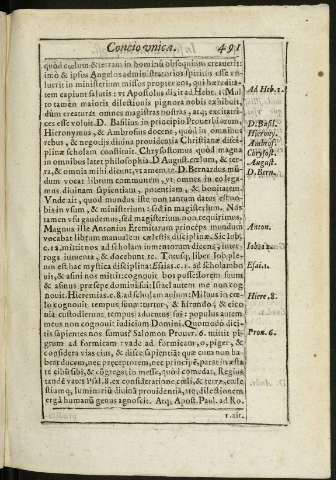 Concio vnica. 491
quòd cœlum & terram in hominũ obsequium creauerit:
imò & ipsos Angelos administratorios spiritus esse vo-
luerit in ministerium missos propter eos, qui hæredita-
tem capiunt salutis: vt Apostolus dixit ad Hebr. 1. Mul
to tamen maioris dilectionis pignora nobis exhibuit,
dum creaturas omnes magistras nostras, atq; excitatri-
ces esse voluit. D. Basilius in principio Prouerbiorum,
Hieronymus, & Ambrosius docent, quòd in omnibus
rebus, & negotijs diuina prouidentia Christianæ disci-
plinæ scholam constituit. Chrysostomus quòd magna
in omnibus latet philosophia. D. August. cœlum, & ter-
ra, & omnia mihi dicunt, vt amem te. D. Bernardus mũ-
dum vocat librum communem, vt omnes in eo lega-
mus diuinam sapientiam, potentiam, & bonitatem.
Vnde ait, quòd mundus iste non tantum datus est no-
bis in vsum, & ministerium: sed in magisterium. Nos
tamen vsu gaudemus, sed magisterium non requirimus.
Magnus ille Antonius Eremitarum princeps mundum
vocabat librum manualem cœlestis disciplinæ. Sic Iob,
c. 12. nos admittit ad scholam iumentorum dicens; inter-
roga iumenta, & docebunt te. Totusq; liber Iob ple-
nus est hac mystica disciplina: Esaias c. 1. ad scholam bo-
uis, & asini nos mittit: cognouit bos possessorem suum
& asinus præsepe domini sui: Israel autem me non cog-
nouit. Hieremias c. 8. ad scholam auium: Miluus in cœ-
lo cognouit tempus suum: turtur, & hirundo, & cico-
nia custodierunt tempus aduentus sui: populus autem
meus non cognouit iudicium Domini. Quomodo dici
tis sapientes nos sumus? Salomon Prouer. 6. mittit pi-
grum ad formicam: vade ad formicam, o, piger, &
considera vias eius, & disce sapientiã: quæ cum non ha-
beat ducem, nec præceptorem, nec principẽ, parat in æsta
te cibũ sibi, & cõgregat in messe, quod comedat. Regius
tandẽ vates Psal. 8. ex consideratione cœli, & terræ, cœle
stiumq; luminariũ diuinã prouidentiã, ac dilectionem
ergà humanũ genus agnoscit. Atq; Apost. Paul. ad Ro.
1. ait.
Ad Heb. 1.
D. Basil.
Hierony.
Ambrosi.
Chrysost.
August.
D. Bern.
Anton.
Iob. 12.
Esai. 1.
Hiere. 8.
Prou. 6.